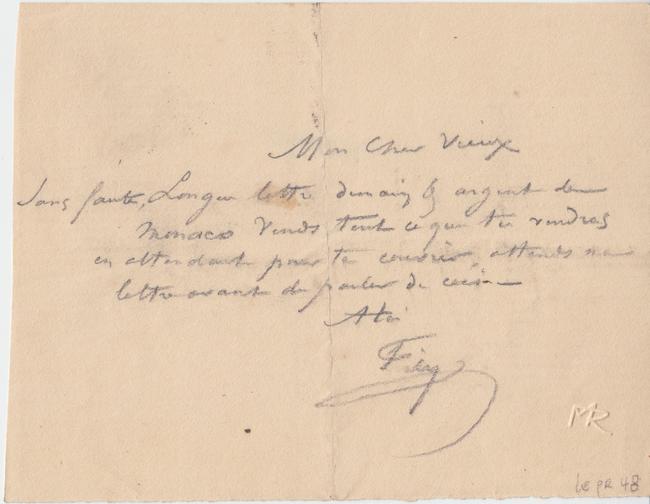 Mon Cher Vieux
Sans faute, Longue lettre demain & argent de
Monaco Vends tout ce que tu voudras
en attendant pour te couvrir attends ma
lettre avant de parler de
A toi
MR
LE PR 48